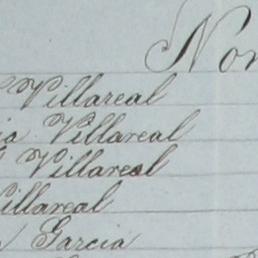 Villareal
Villareal
Villareal
Villareal
Garcia